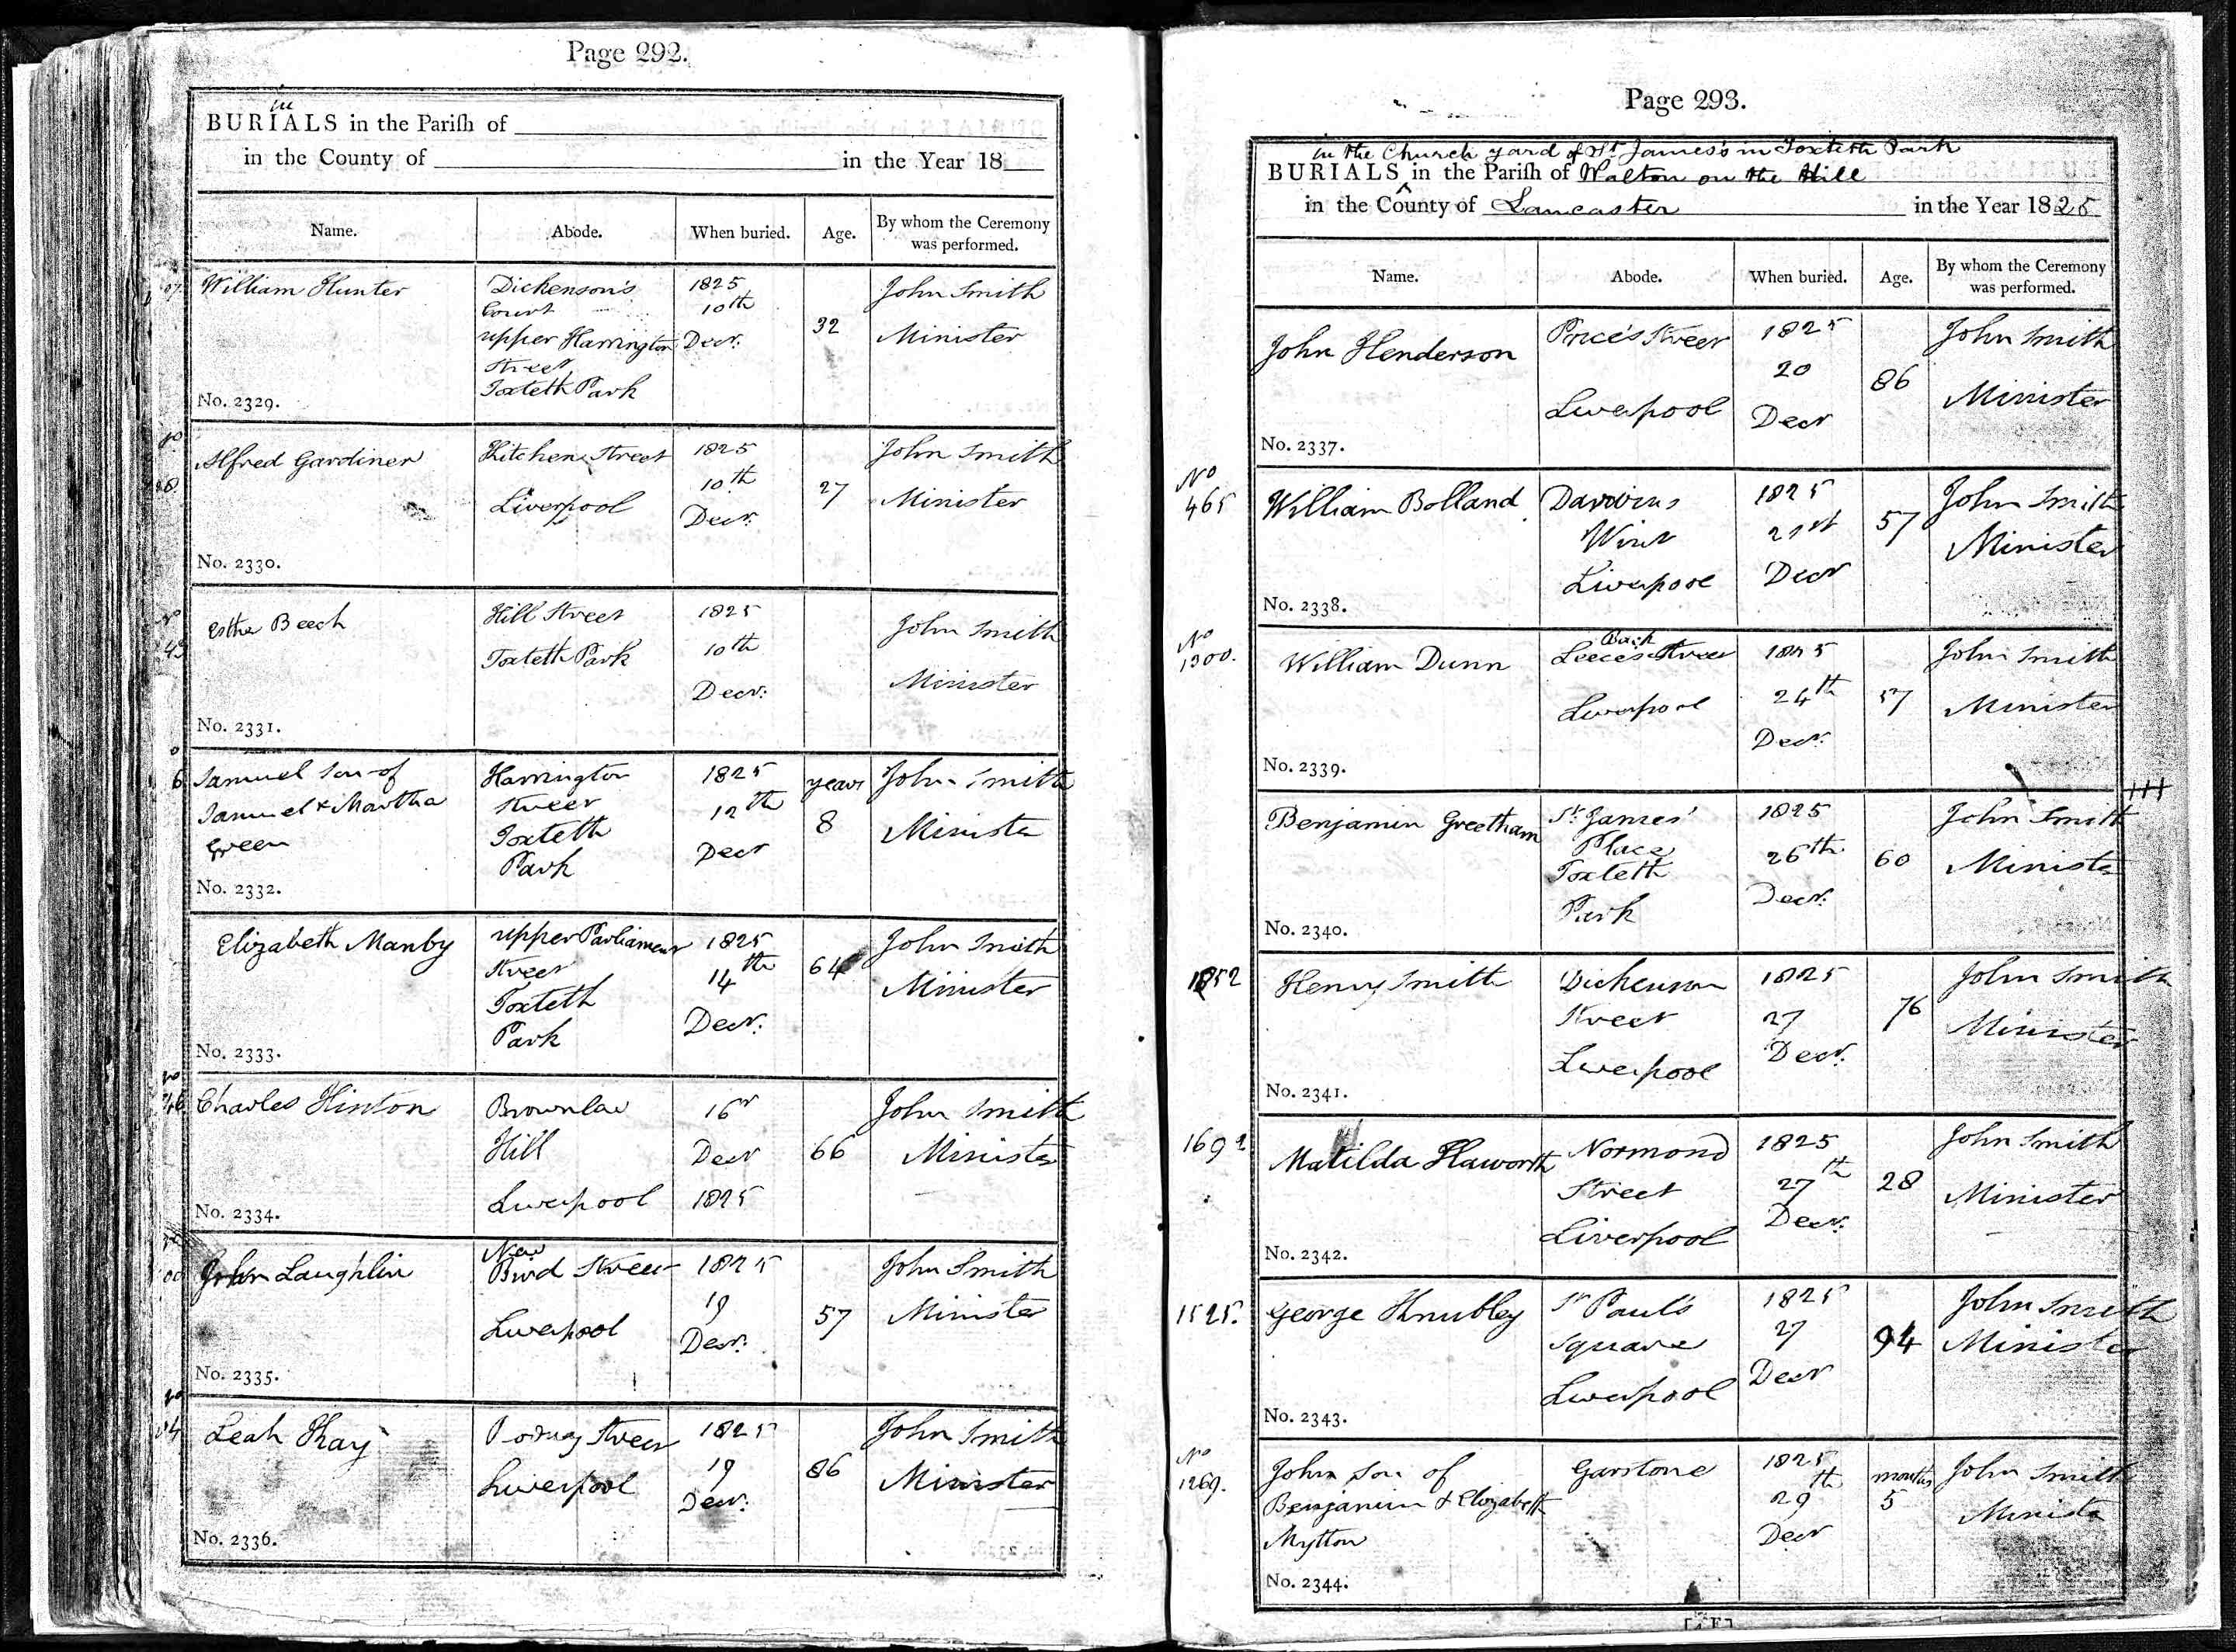 Page 292.
in
BURIALS in the Pariſh of
in the County of in the Year 18
Name. Abode. When buried. Age. By whom the Ceremony was performed.
William Hunter
Dickenson's
Court
upper Harrington
Street
Toxteth Park
1825
10th
Decr.
32
John Smith
Minister
No. 2329.
Alfred Gardiner
Kitchen Street
Liverpool
1825
10th
Decr.
27
John Smith
Minister
No. 2330.
Esther Beech
Hill Street
Toxteth Park
1825
10th
Decr.
John Smith
Minister
No. 2331.
Samuel son of
Samuel & Martha
Green
Harrington
Street
Toxteth
Park
1825
12th
Decr
years
8
John Smith
Minister
No. 2332.
Elizabeth Manby
upper Parliament
Street
Toxteth
Park
1825
14th
Decr.
64
John Smith
Minister
No. 2333.
Charles Hinton
Brownlow
Hill
Liverpool
16
Decr
1825
66
John Smith
Minister
No. 2334.
John Laughlin
New
Bird Street
Liverpool
1825
19
Decr.
57
John Smith
Minister
No. 2335.
Leah
Street
Liverpool
1825
19
Decr.
86
John Smith
Minister
No. 2336.
Page 293.
in the Church yard of St James's in Toxteth Park
BURIALS in the Pariſh of Walton on the Hill
in the County of Lancaster in the Year 1825
Name. Abode. When buried. Age. By whom the Ceremony was performed.
John Henderson
Price's Street
Liverpool
1825
20
Decr
86
John Smith
Minister
No. 2337.
No
465
William Bolland
Darwins
Wint
Liverpool
1825
21st
Decr
57
John Smith
Minister
No. 2338.
No
1300.
William Dunn
Back
Leeces Street
Liverpool
1825
24th
Decr.
57
John Smith
Minister
No. 2339.
Benjamin Greetham
St. James'
Place
Toxteth
Park
1825
26th
Decr.
60
John Smith
Minister
No. 2340.
1852
Henry Smith
Dickenson
Street
Liverpool
1825
27
Decr.
76
John Smith
Minister
No. 2341.
1692
Matilda Haworth
Normond
Street
Liverpool
1825
27th
Decr.
28
John Smith
Minister
No. 2342.
1525.
George Knubley
St Paul's
Square
Liverpool
1825
27
Decr
94
John Smith
Minister
No. 2343.
No
1269.
John son of
Benjamin & Elizabeth
Mytton
Garstone
1825
29th
Decr
months
5
John Smith
Minister
No. 2344.